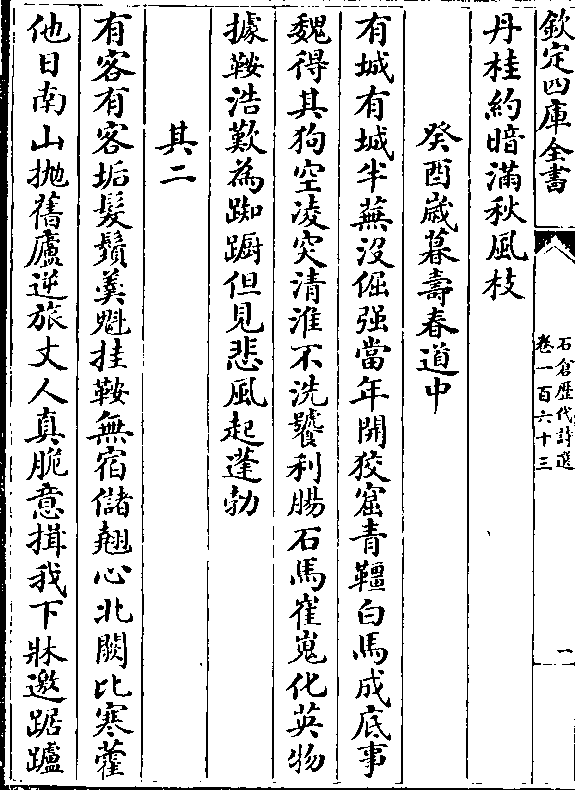 欽定四庫全書
石倉歴代詩選
卷一百六十三
一
丹桂約暗滿秋風枝
癸酉嵗暮壽春道中
有城有城半蕪没倔强當年開狡窟青韁白馬成底事
魏得其狗空凌突清淮不洗饕利腸石馬崔嵬化英物
據鞍浩歎為踟蹰但見悲風起蓬勃
其二
有客有客垢髮鬚羮魁挂鞍無宿儲翹心北闕比寒藿
他日南山抛舊廬逆旅丈人真脆意揖我下牀邀踞蹠